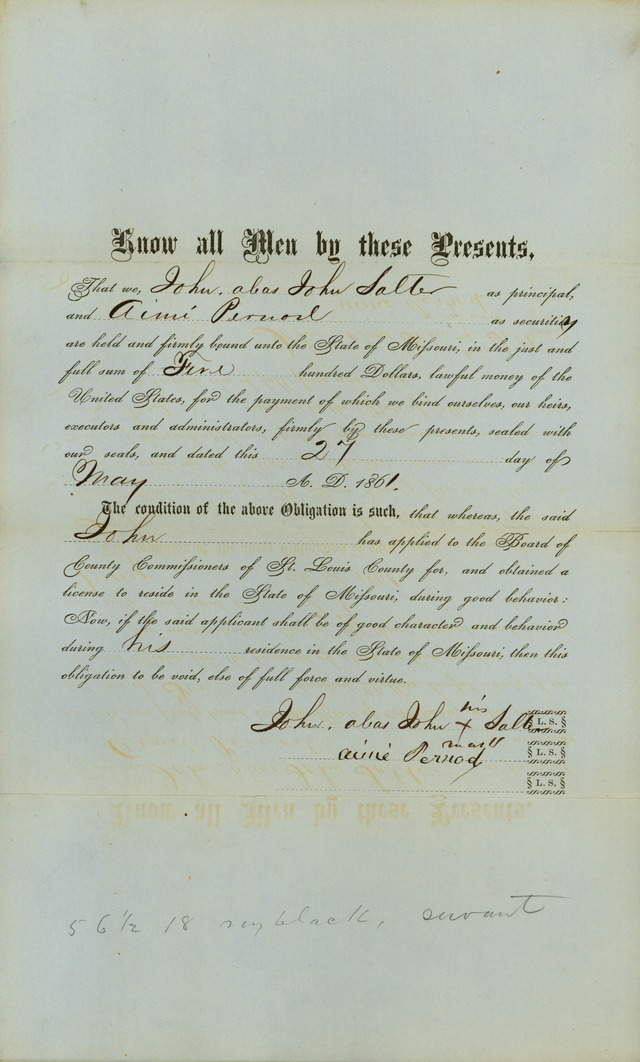 Know all Men by these Presents,
That we, John. alias John Salter as principal,
and Aimé Pernod as securities
are held and firmly bound unto the State of Missouri, in the just and
full sum of Five hundred Dollars, lawful money of the
United States, for the payment of which we bind ourselves, our heirs,
executors and administrators, firmly by these presents, sealed with
our seals, and dated this 27 day of
May A. D. 1861.
The condition of the above Obligation is such, that whereas, the said
John has applied to the Board of
County Commissioners of St. Louis County for, and obtained a
license to reside in the State of Missouri, during good behavior:
Now, if the said applicant shall be of good character and behavior
during his residence in the State of Missouri, then this
obligation to be void, else of full force and virtue.
his
John. alias John X Salter L. S.
mark
aimé Pernod L. S.
L. S.
5 6 1/2 18 black, servant